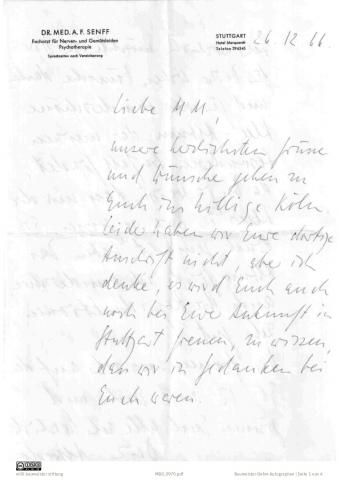 DR. MED. A. F. SENFF
Facharzt für Nerven- und Gemütsleiden
Psychotherapie
Sprechzeiten nach Vereinbarung
STUTTGART
Hotel Marquardt
Telefon 294345
26.12.66
Liebe MM,
unsere herzlichsten Grüsse
und Wünsche gehen zu
Euch ins hillige Köln
leider haben wir Euere dortige
Anschrift nicht, aber ich
denke, es wird Euch auch
noch bei Euerer Ankunft in
Stuttgart freuen, zu wissen,
dass wir in Gedanken bei
Euch waren.
willi baumeister stiftung
Baumeister Online Autographen | Seite 1 von 4